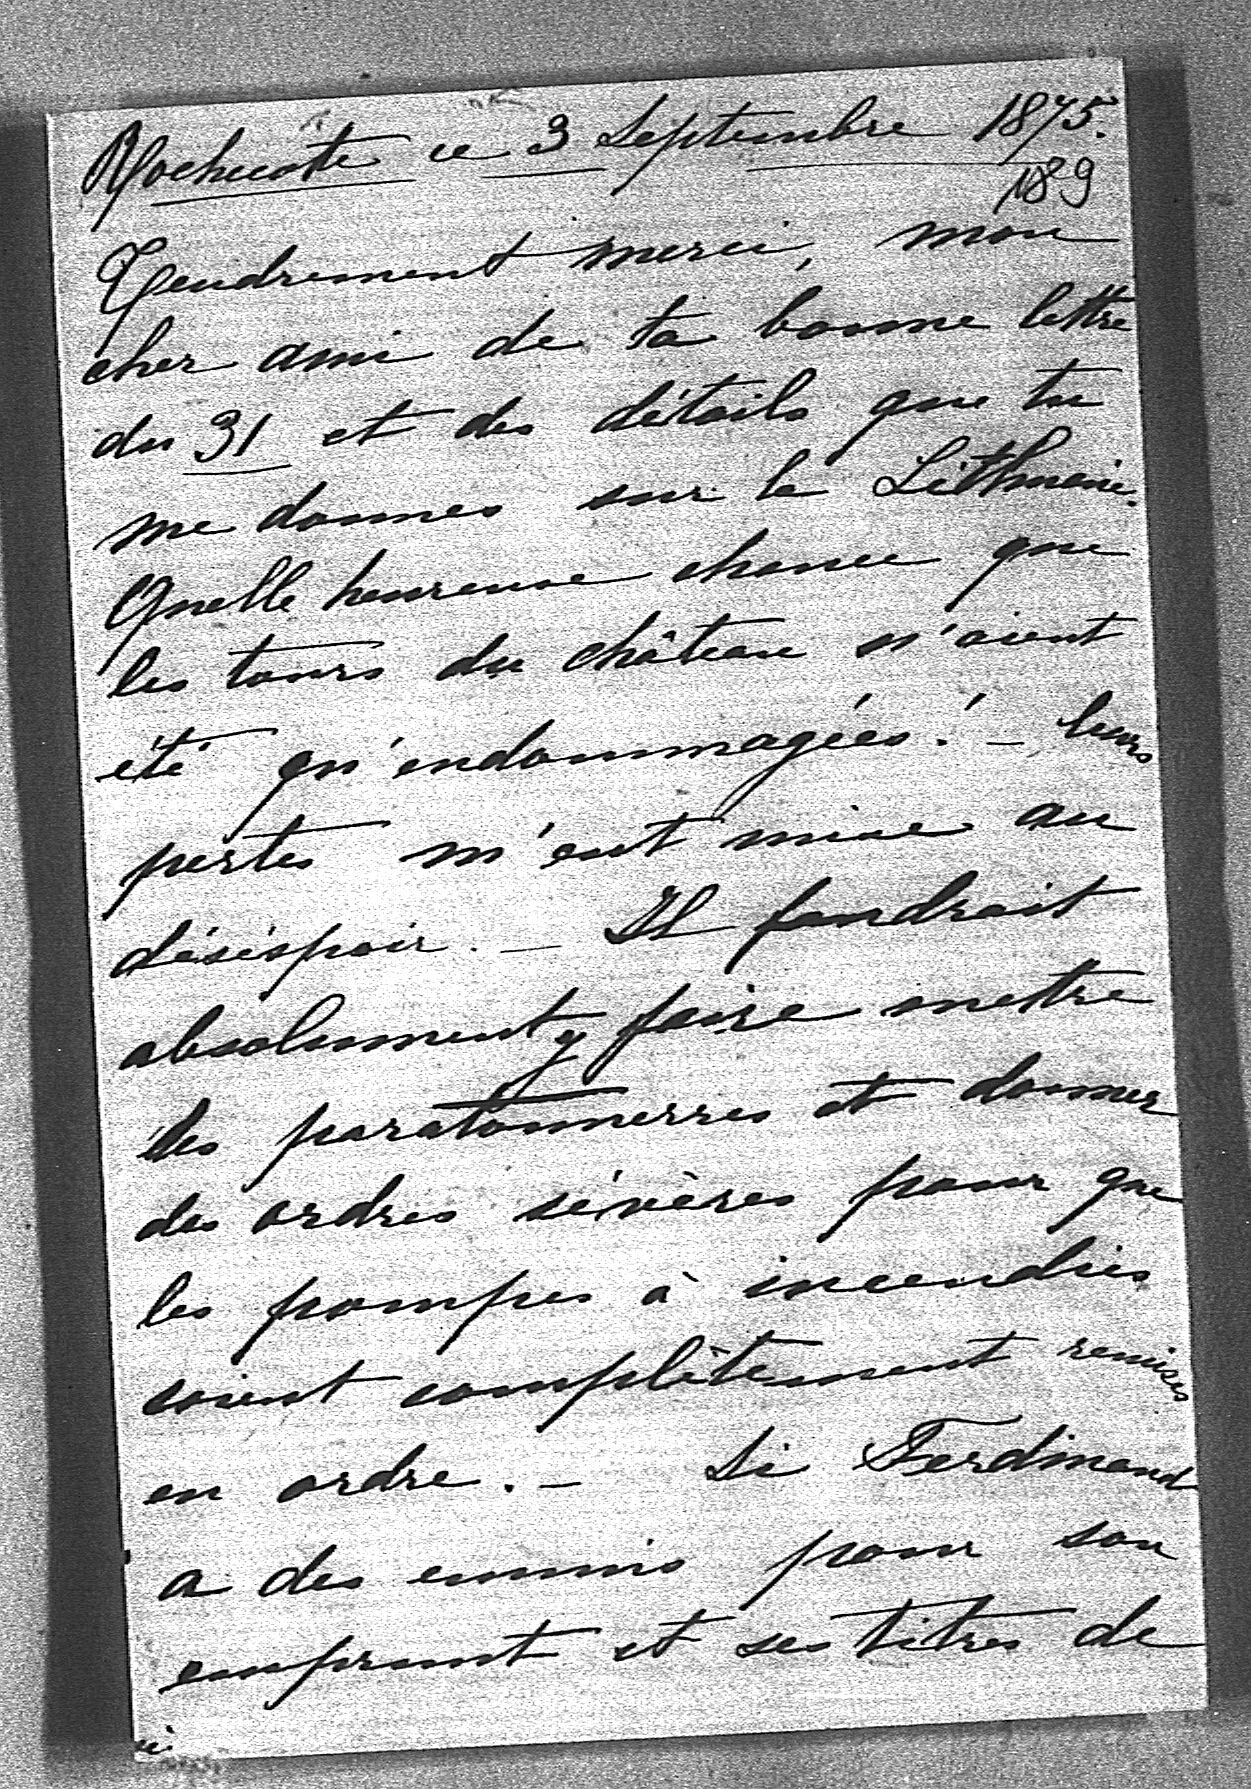 Rochecotte ce 3 Septembre 1875.
189
Tendrement merci, mon
cher ami de ta bonne lettre
du 31 et des détails que tu
me donnes sur la Lithuanie.
Quelle heureuse chance que
les tours du château n'aient
été qu'endommagées! – leurs
pertes m'eut mise au
désespoir. – Il faudrait
absolument y faire mettre
des paratonnerres et donner
des ordres sévères pour que
les pompes à incendies
soient complètement remises
en ordre. – Si Ferdinand
a des ennuis pour son
emprunt et ses titres de